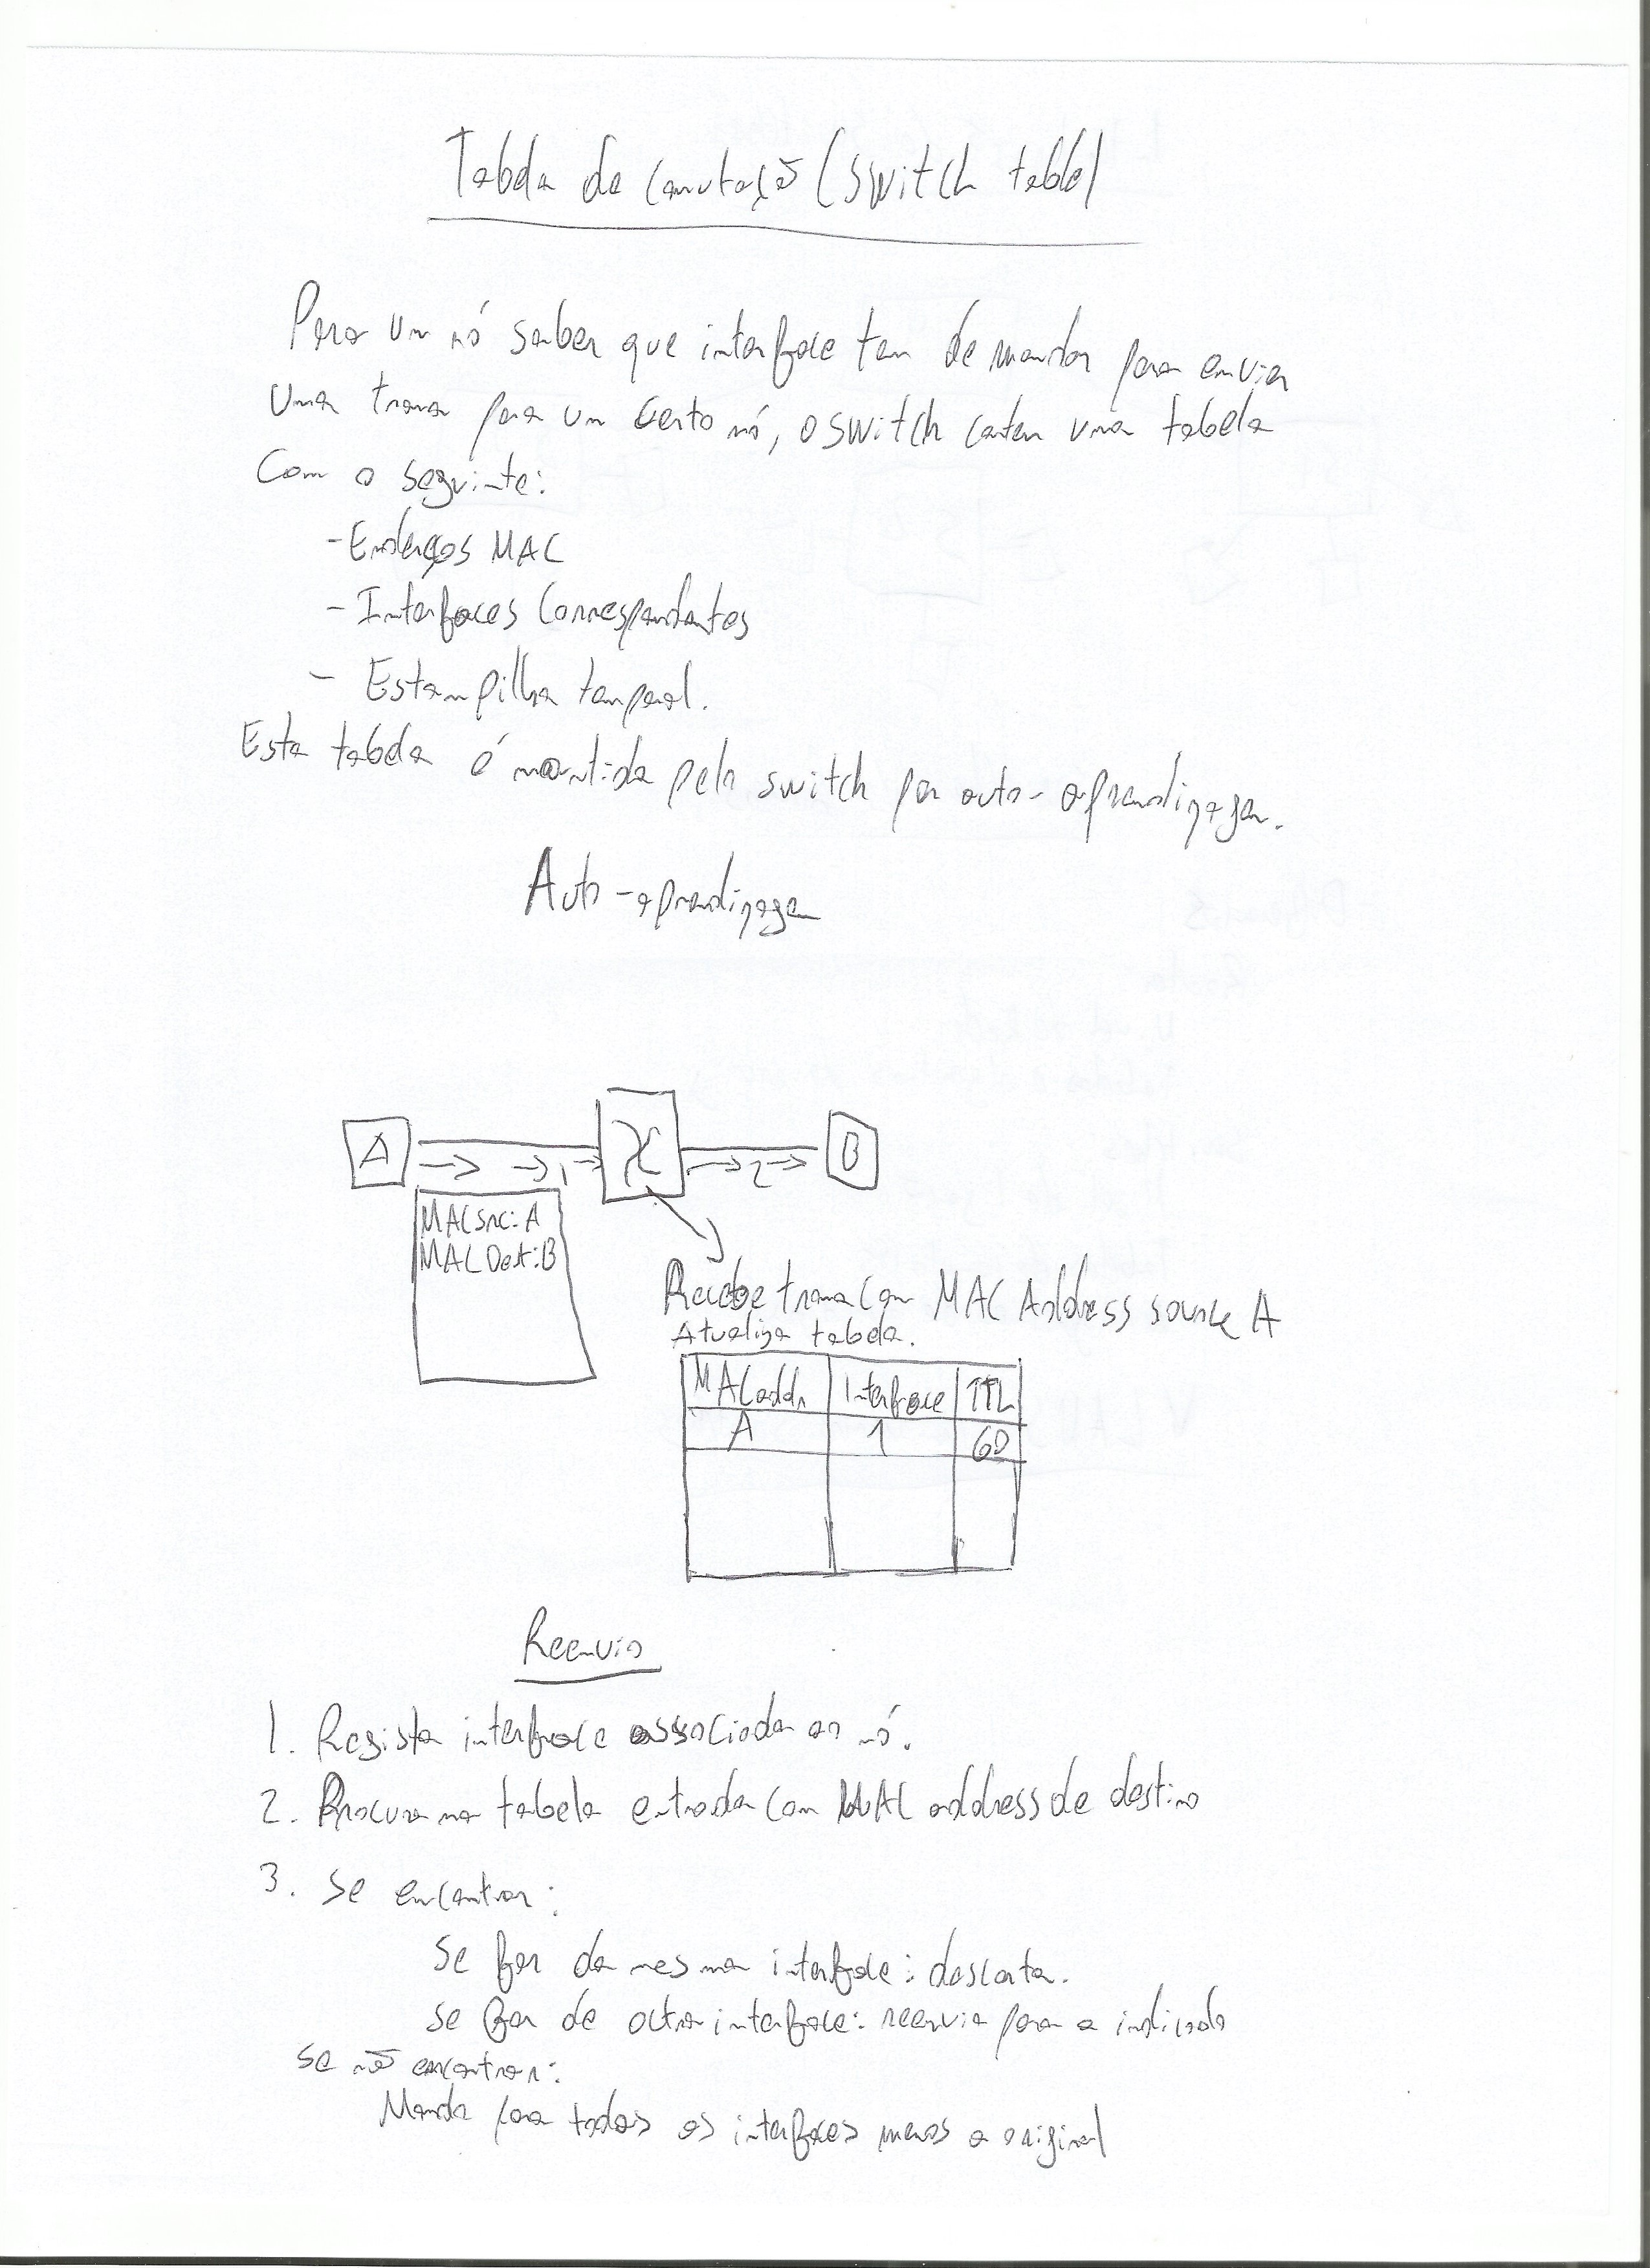 Tabela de comutação (switch table)
Para um nó saber que interface tem de mandar para enviar
uma trama para um certo nó, o switch contem uma tabela
Com o seguinte:
- Endereços MAC
- Interfaces Correspondentes
- Estampilha temporal.
Esta tabela é mantida pelo switch por auto-aprendizagem.
Auto-aprendizagem
A
1
2
B
MAC src: A
MAC Dest: B
Recebe trama com MAC Address source A
Atualiza tabela.
MAC addr Interface TTL
A 1 60
Reenvio
1. Regista interface associada ao nó.
2. Procura na tabela entrada com MAC address de destino
3. Se encontrar:
Se for da mesma interface: descarta.
Se for de outra interface: reenvia para a indicada
Se não encontrar:
Manda para todas as interfaces menos a original